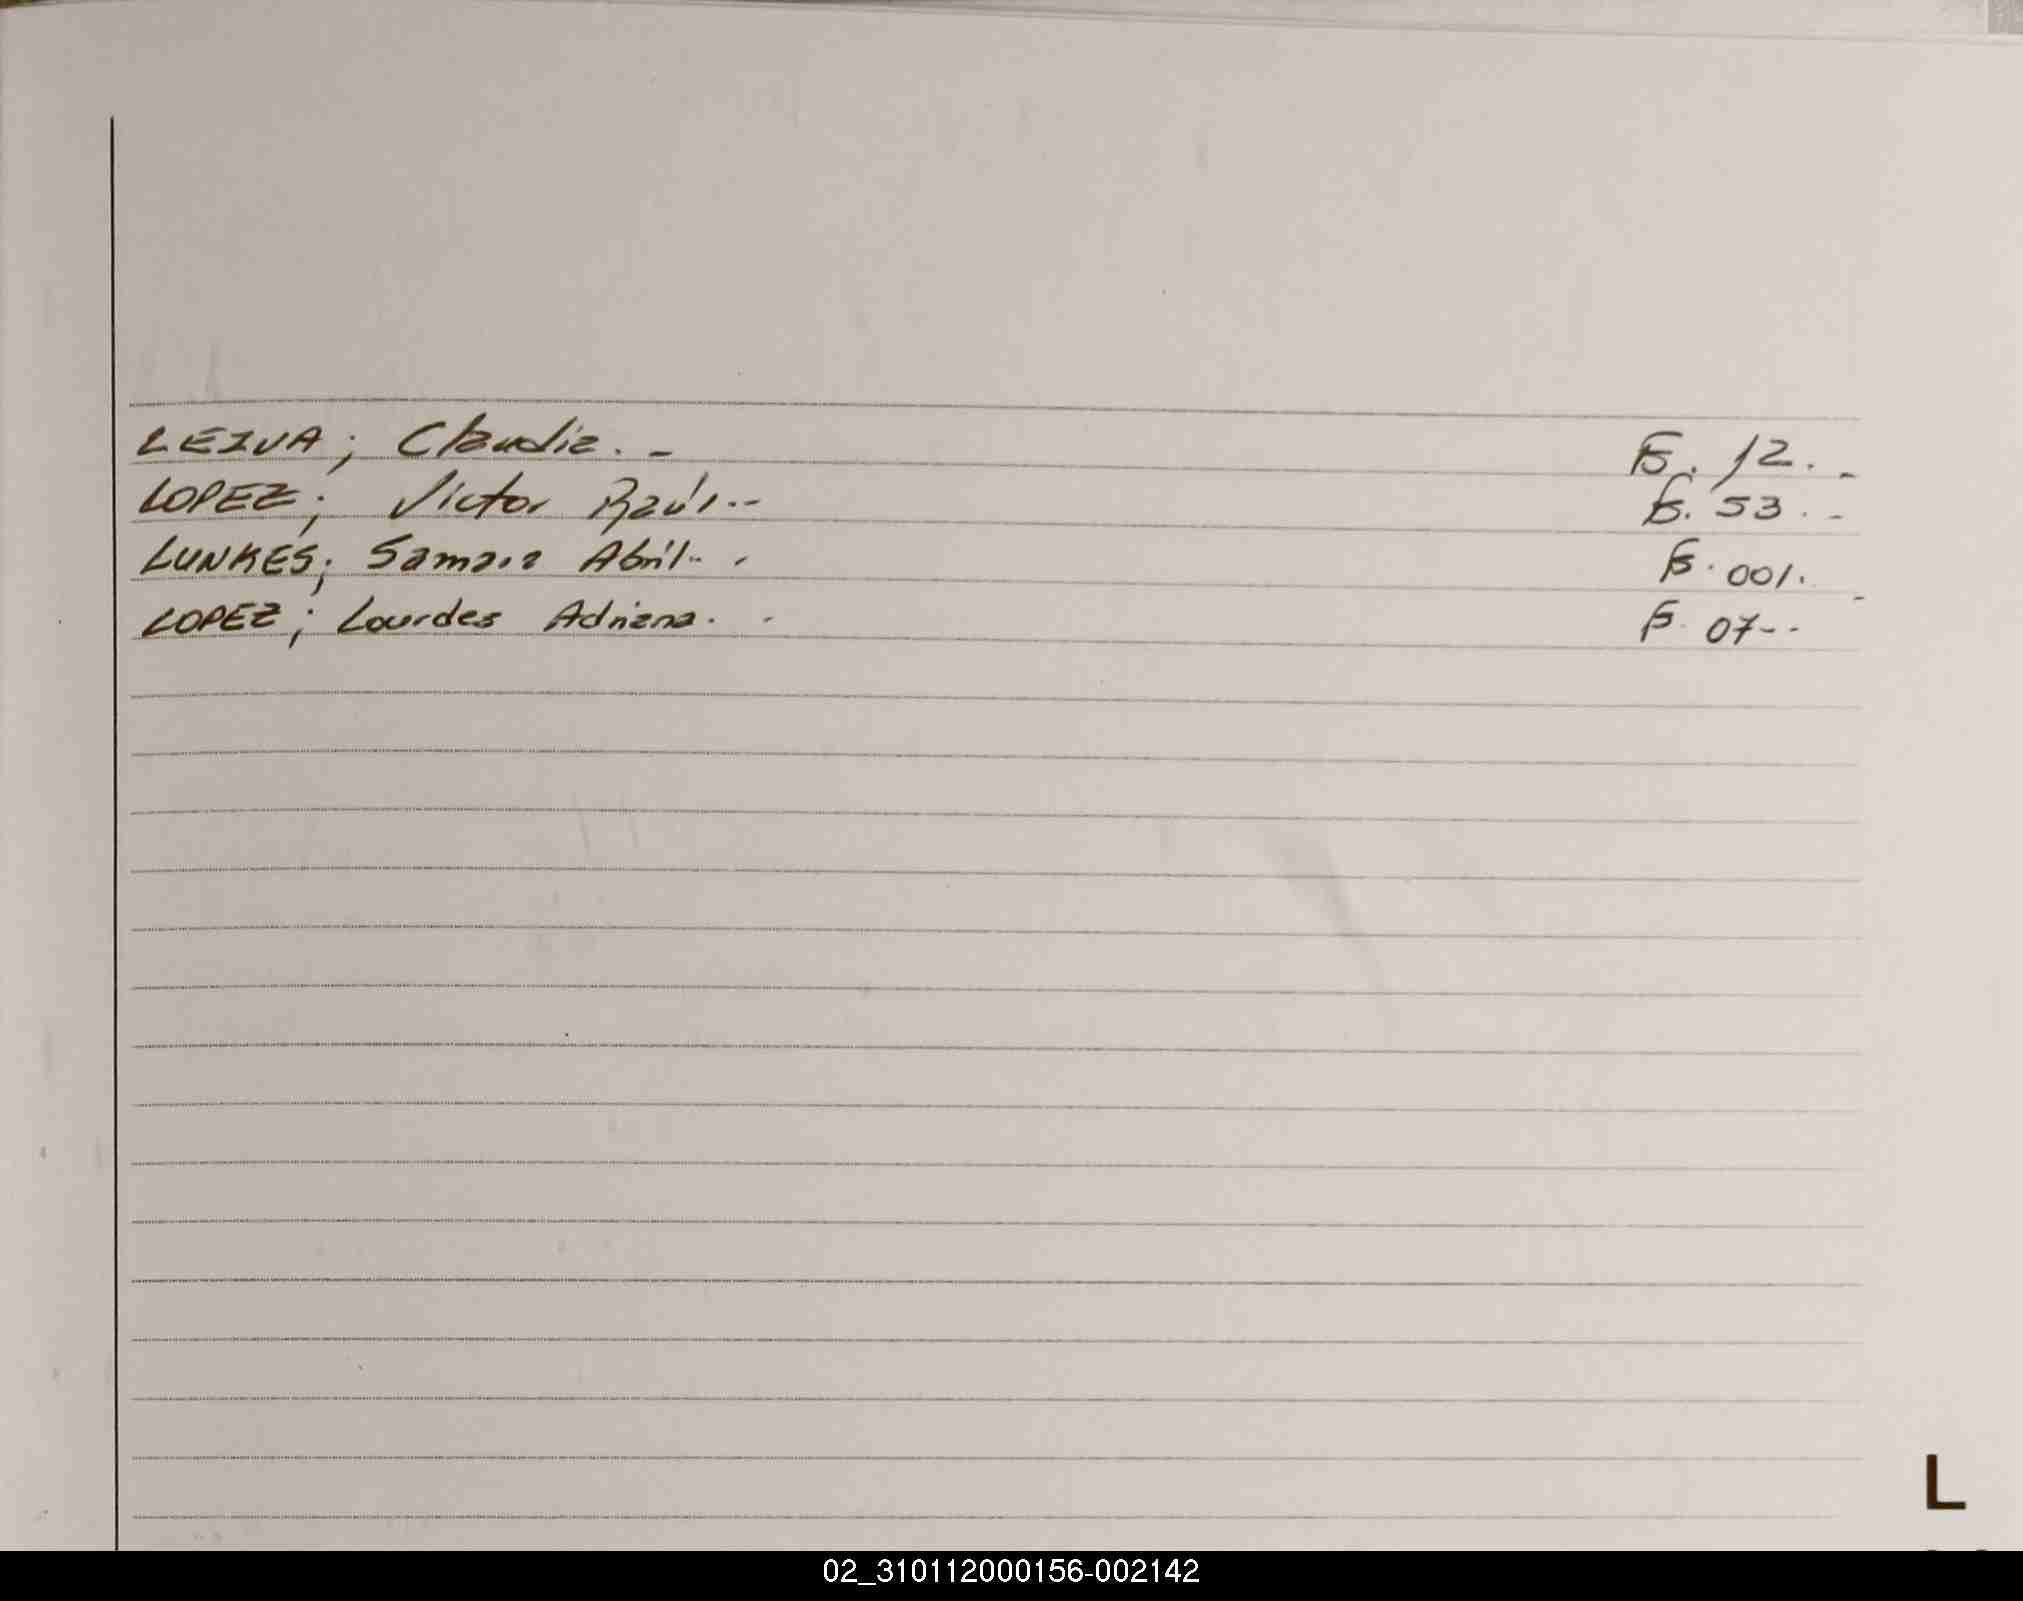 LEIVA; Claudia. - Fs. 12. -
LOPEZ; Victor Raúl. -- Fs. 53. -
LUNKES; Samara Abril. - Fs. 001. -
LOPEZ; Lourdes Adriana. - Fs. 07 --
L
02_310112000156-002142